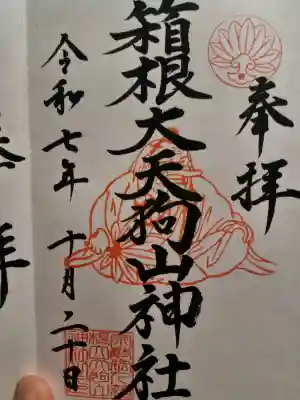 奉拝
箱根大天狗山神社
令和七年十月二十日
拝